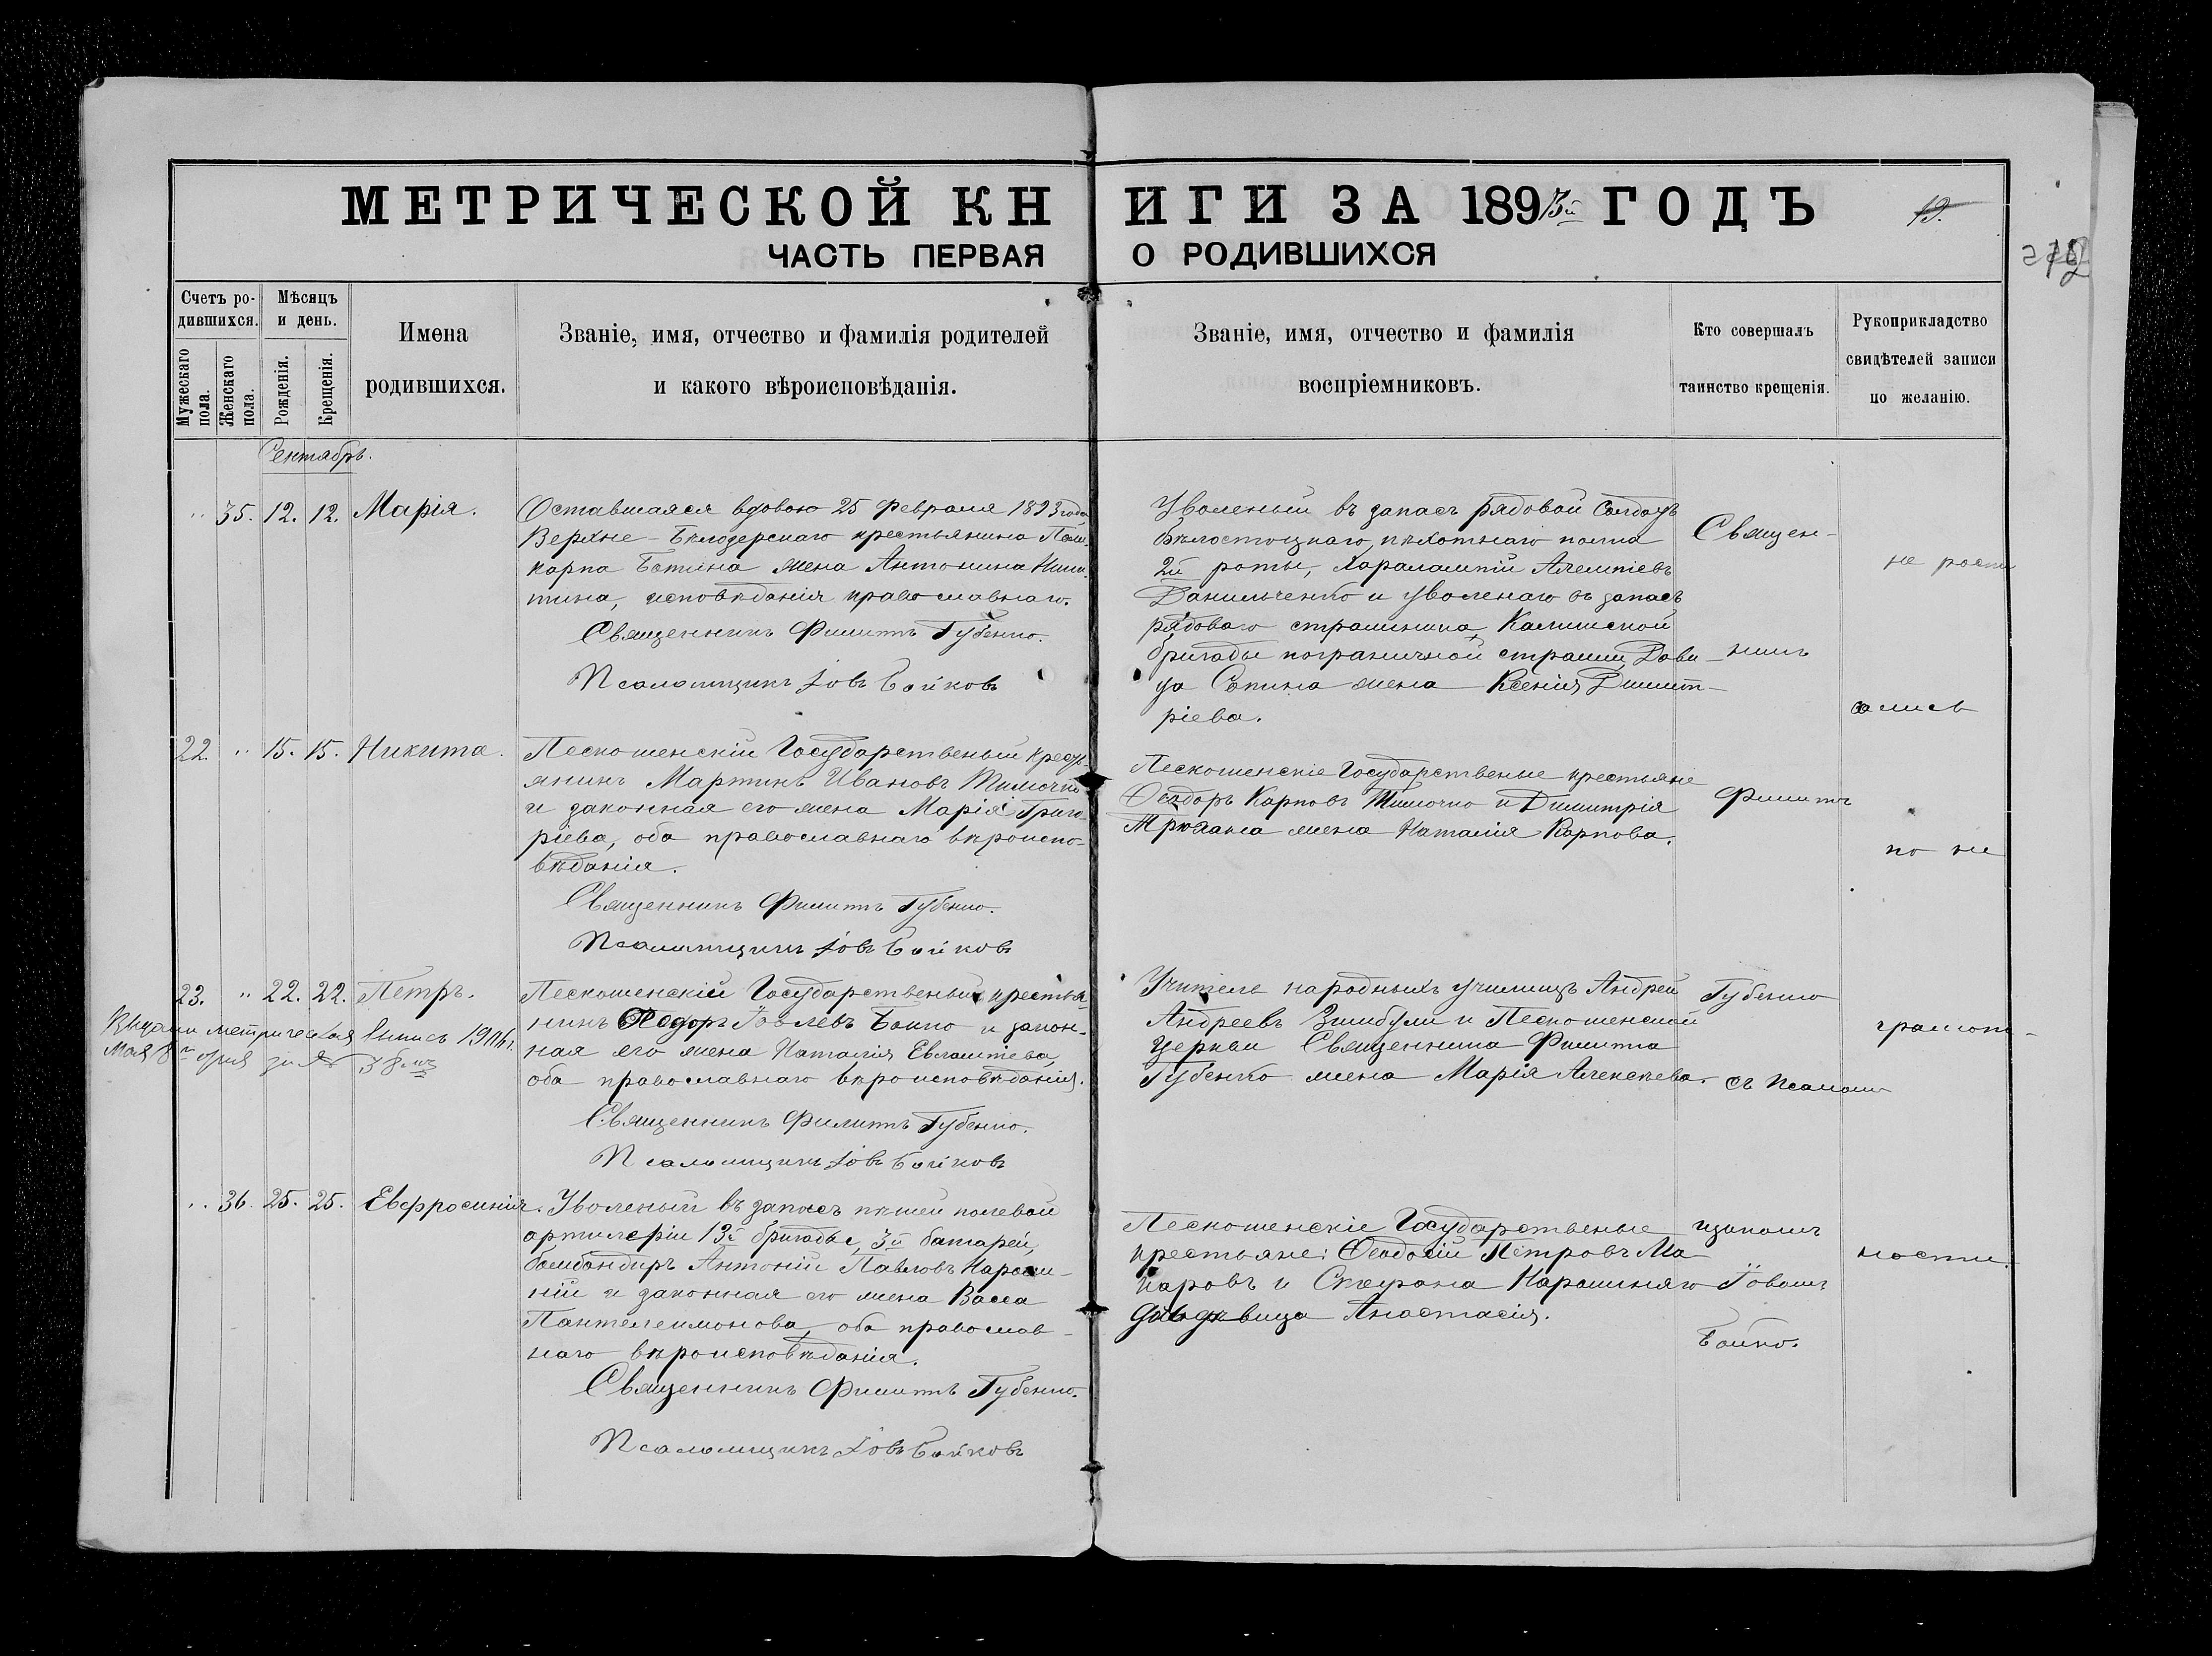 МЕТРИЧЕСКОЙ КНИГИ ЗА 1893й ГОДЪ
19.
ЧАСТЬ ПЕРВАЯ О РОДИВШИХСЯ
Счетъ родившихся.
Мужескаго пола.
Женскаго пола.
Мѣсяцъ и день.
Рожденія.
Крещенія.
Имена
родившихся.
Званіе, имя, отчество и фамилія родителей
и какого вѣроисповѣданія.
Званіе, имя, отчество и фамилія
воспріемниковъ.
Кто совершалъ
таинство крещенія.
Рукоприкладство
свидѣтелей записи
по желанію.
Сентябрь.
" 35. 12. 12. Марія.
Оставшаяся вдовою 25 февраля 1893 года
Верхне-Бѣлозерскаго крестьянина Поли-
карпа жена Антонина Ники-
тина, исповѣданія православнаго.
Священникъ Филиппъ Губенко.
Псаломщикъ Іовъ Бойковъ
Уволеный въ запасъ рядовой Солдатъ
бѣлостоцкаго, пѣхотнаго полка
2й роты, Харалампій Алемпіевъ
Данильченко и уволенаго въ запасъ
рядоваго стражника Калишской
бригады пограничной стражи, Дави-
да жена Ксенія Димит-
ріева.
22. " 15. 15. Никита.
Пескошенскій Государственый кресть-
янинъ Мартинъ Ивановъ Тимочко
и законная его жена Марія Григо-
ріева, оба православнаго вѣроиспо-
вѣданія.
Священникъ Филиппъ Губенко.
Псаломщикъ Іовъ Бойковъ
Пескошенскіе Государственые крестьяне
Ѳеодоръ Карповъ Тимочко и Димитрія
жена Наталія Карпова.
23. " 22. 22. Петръ.
Пескошенскій Государственый крестья-
нинъ Ѳеодоръ Іовлевъ Бойко и закон-
ная его жена Наталія Евлампіева,
оба православнаго вѣроисповѣданія.
Священникъ Филиппъ Губенко.
Псаломщикъ Іовъ Бойковъ
Учитель народныхъ училищъ Андрей
Андреевъ и Пескошенской
Церкви Священника Филиппа
Губенко жена Марія Алексѣева.
метрическая выпись
Мая 8го дня за №
" 36. 25. 25. Евфросинія.
Уволеный въ запасъ пѣшей полевой
артилеріи 13й бригады, 3й батареи,
бомбандиръ Антоній Павловъ
ній и законная его жена Васса
Пантелеимонова, оба православ-
наго вѣроисповѣданія.
Священникъ Филиппъ Губенко.
Псаломщикъ Іовъ Бойковъ
Пескошенскіе Государственые
крестьяне: Ѳеодосій Петровъ Ма-
каровъ и Стефана
дѣвица Анастасія.
Священ-
никъ
Филиппъ
Губенко
съ Псалом-
щикомъ
Іовомъ
Бойко.
не роспи
сались
по не
грамот-
ности.